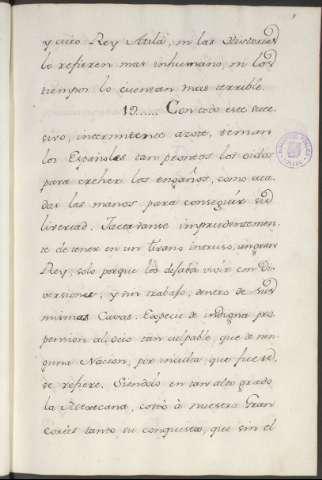 y cuio Rey Atila, ni las Historias
le refieren mas inhumano, ni los
tiempos lo cuentan mas terrible.
19..... Con todo este
sivo, intermitente azote, tenian
los Españoles tan promtos los oidos
para creher los engaños, como ata-
das las manos para conseguir su
libertad. Jactavanse imprudentemen-
te de tener en un tirano intruso, un gran
Rey, solo porque los dejaba vivir con di-
versiones, y sin trabajo, dentro de sus
mismas Casas. Especie de indigna pro-
pension al ocio tan culpable, que de nin-
guna Nacion, por inculta que fuese,
se refiere. Siendolo en tan alto grado
la Mexicana, costó à nuestro Gran
Cortés tanto su conquista, que sin el